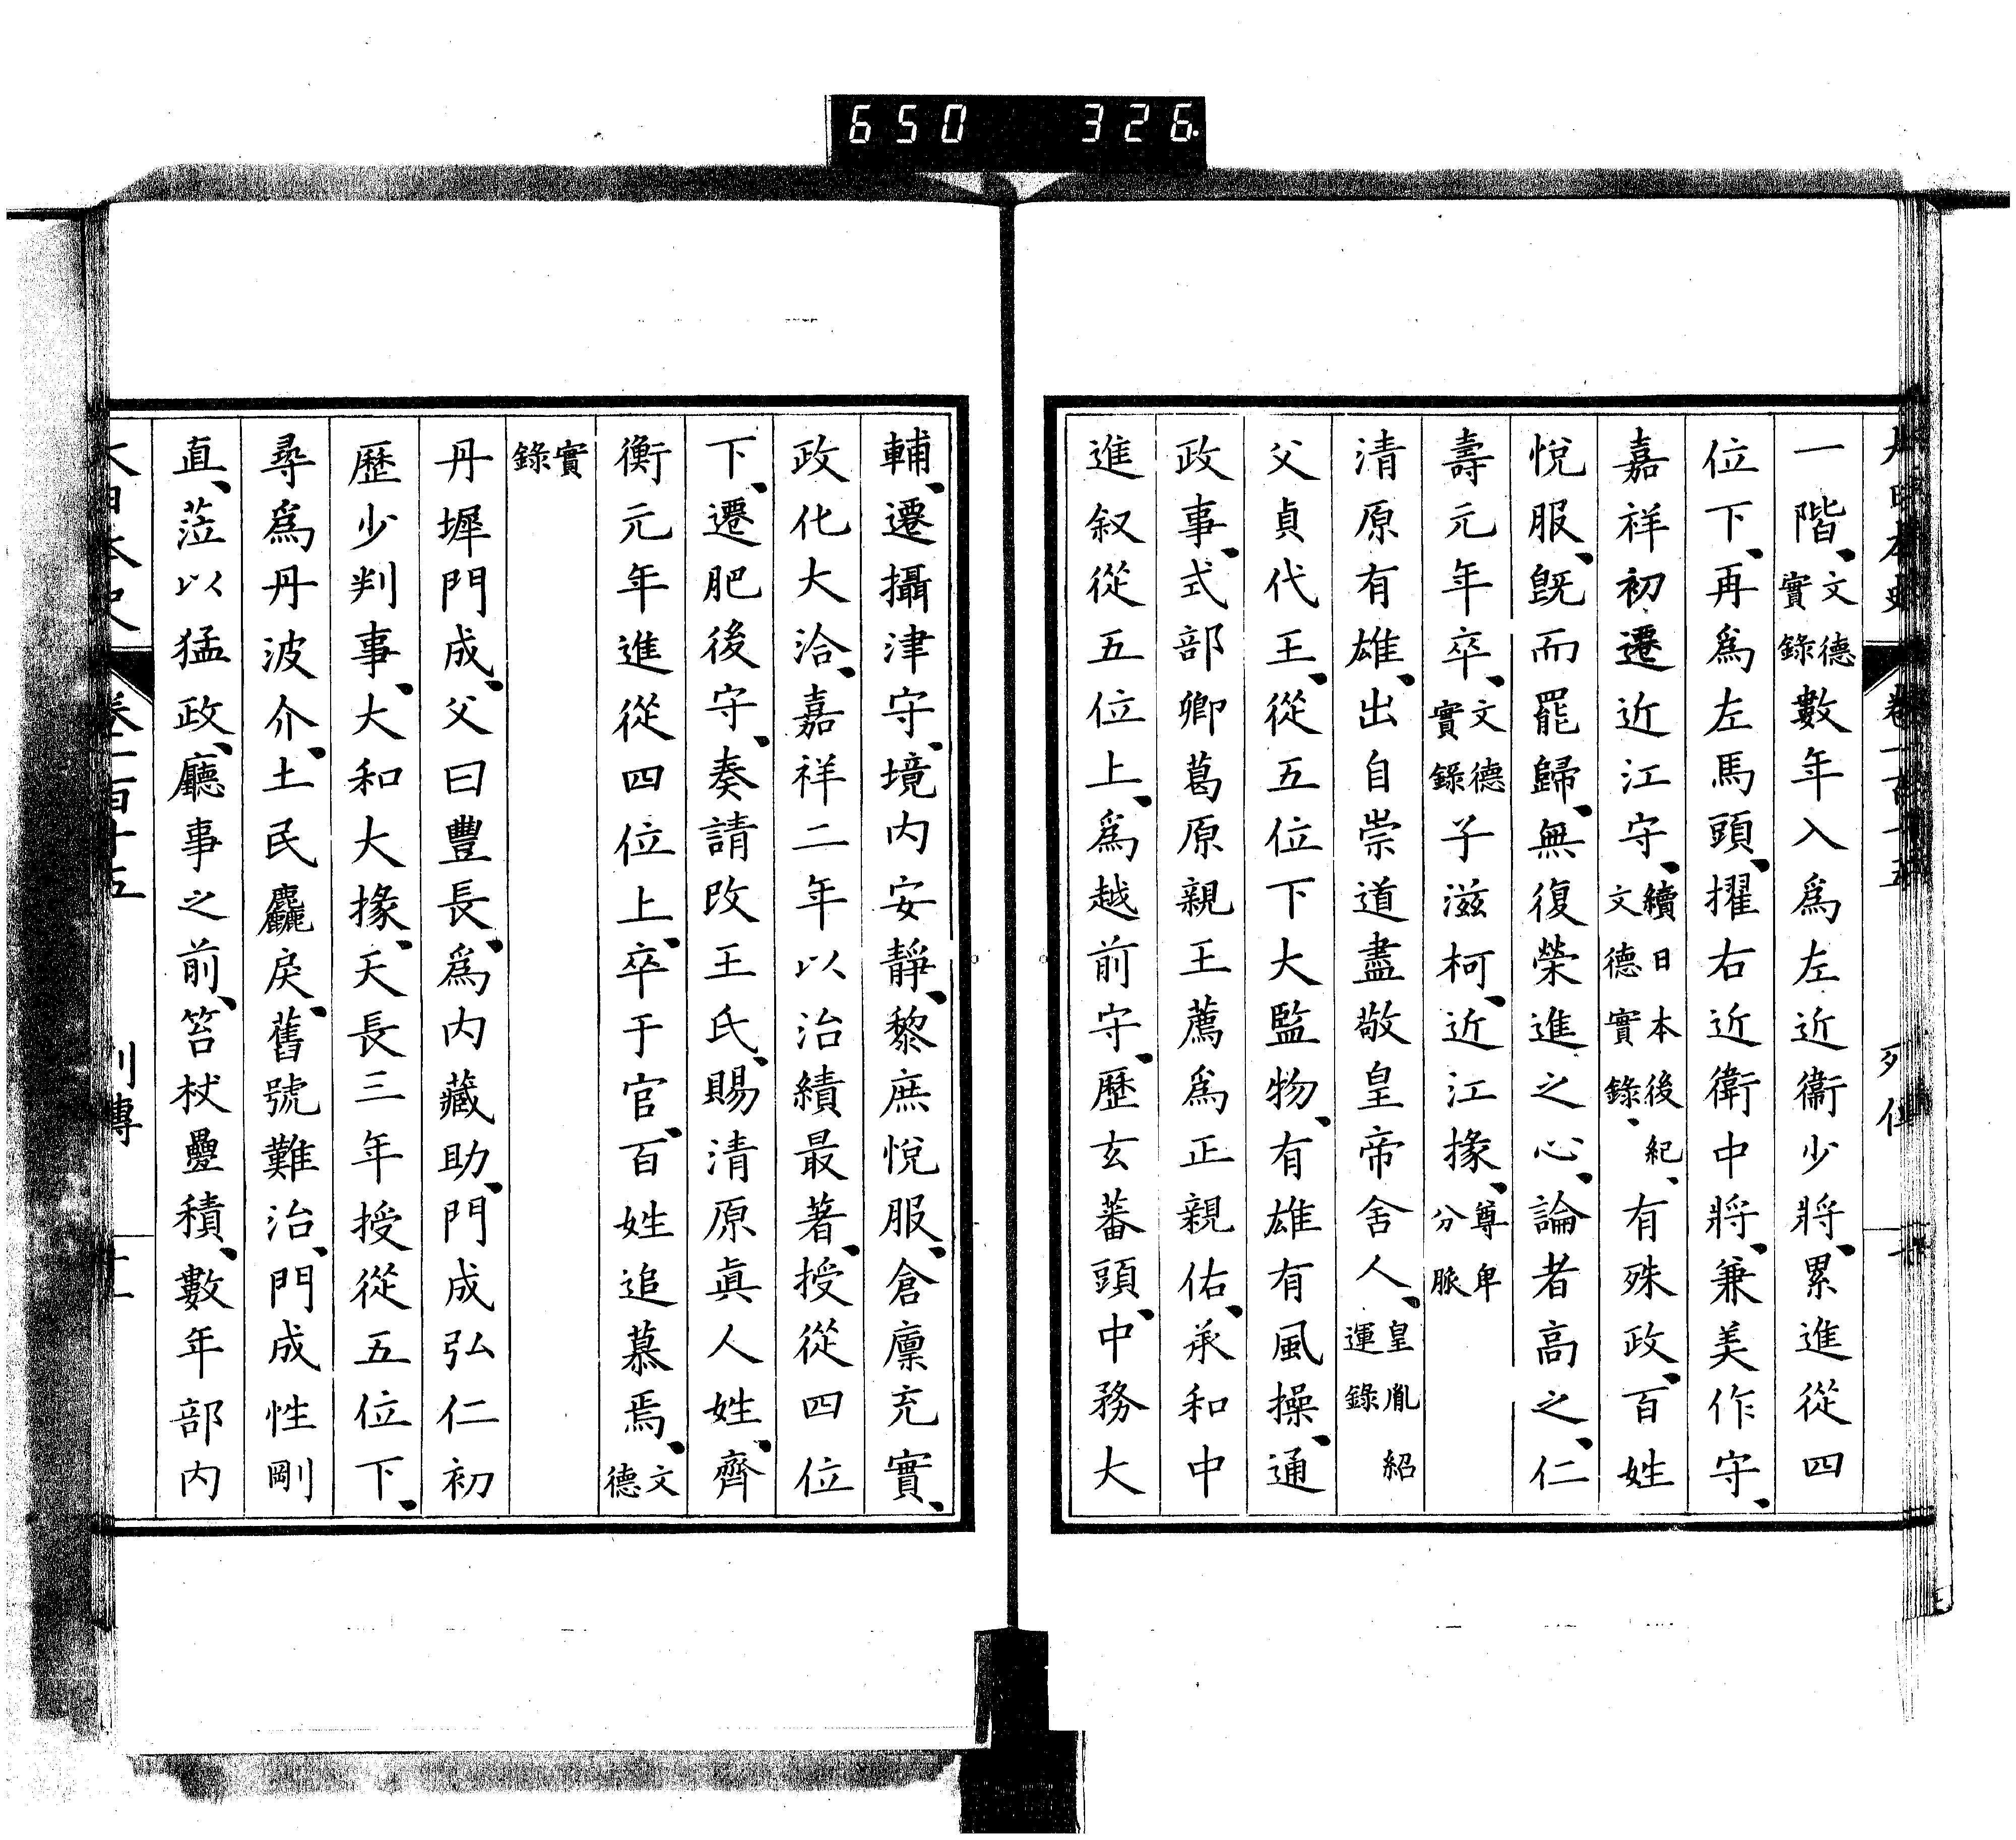 650 326
大日本史 卷一百十五 列傳
一階、文德實錄數年入爲左近衞少將、累進從四
位下、再爲左馬頭、擢右近衛中將、兼美作守、
嘉祥初遷近江守、續日本後紀、文德實錄、有殊政、百姓
悅服、旣而罷歸、無復榮進之心、論者高之、仁
壽元年卒、文德實錄子滋柯、近江掾、尊卑分脈
清原有雄、出自崇道盡敬皇帝舍人、皇胤紹運錄
父貞代王、從五位下大監物、有雄有風操、通
政事、式部卿葛原親王薦爲正親佑、承和中
進叙從五位上、爲越前守、歷玄蕃頭、中務大
輔、遷攝津守、境内安靜、黎庶悅服、倉廩充實、
政化大洽、嘉祥二年以治績最著、授從四位
下、遷肥後守、奏請改王氏、賜清原眞人姓、齊
衡元年進從四位上、卒于官、百姓追慕焉、文德
實錄
丹墀門成、父曰豐長、爲内藏助、門成弘仁初
歷少判事、大和大掾、天長三年授從五位下、
尋爲丹波介、土民麤戾、舊號難治、門成性剛
直、莅以猛政、廳事之前、笞杖疊積、數年部内
大日本史 卷一百十五 列傳